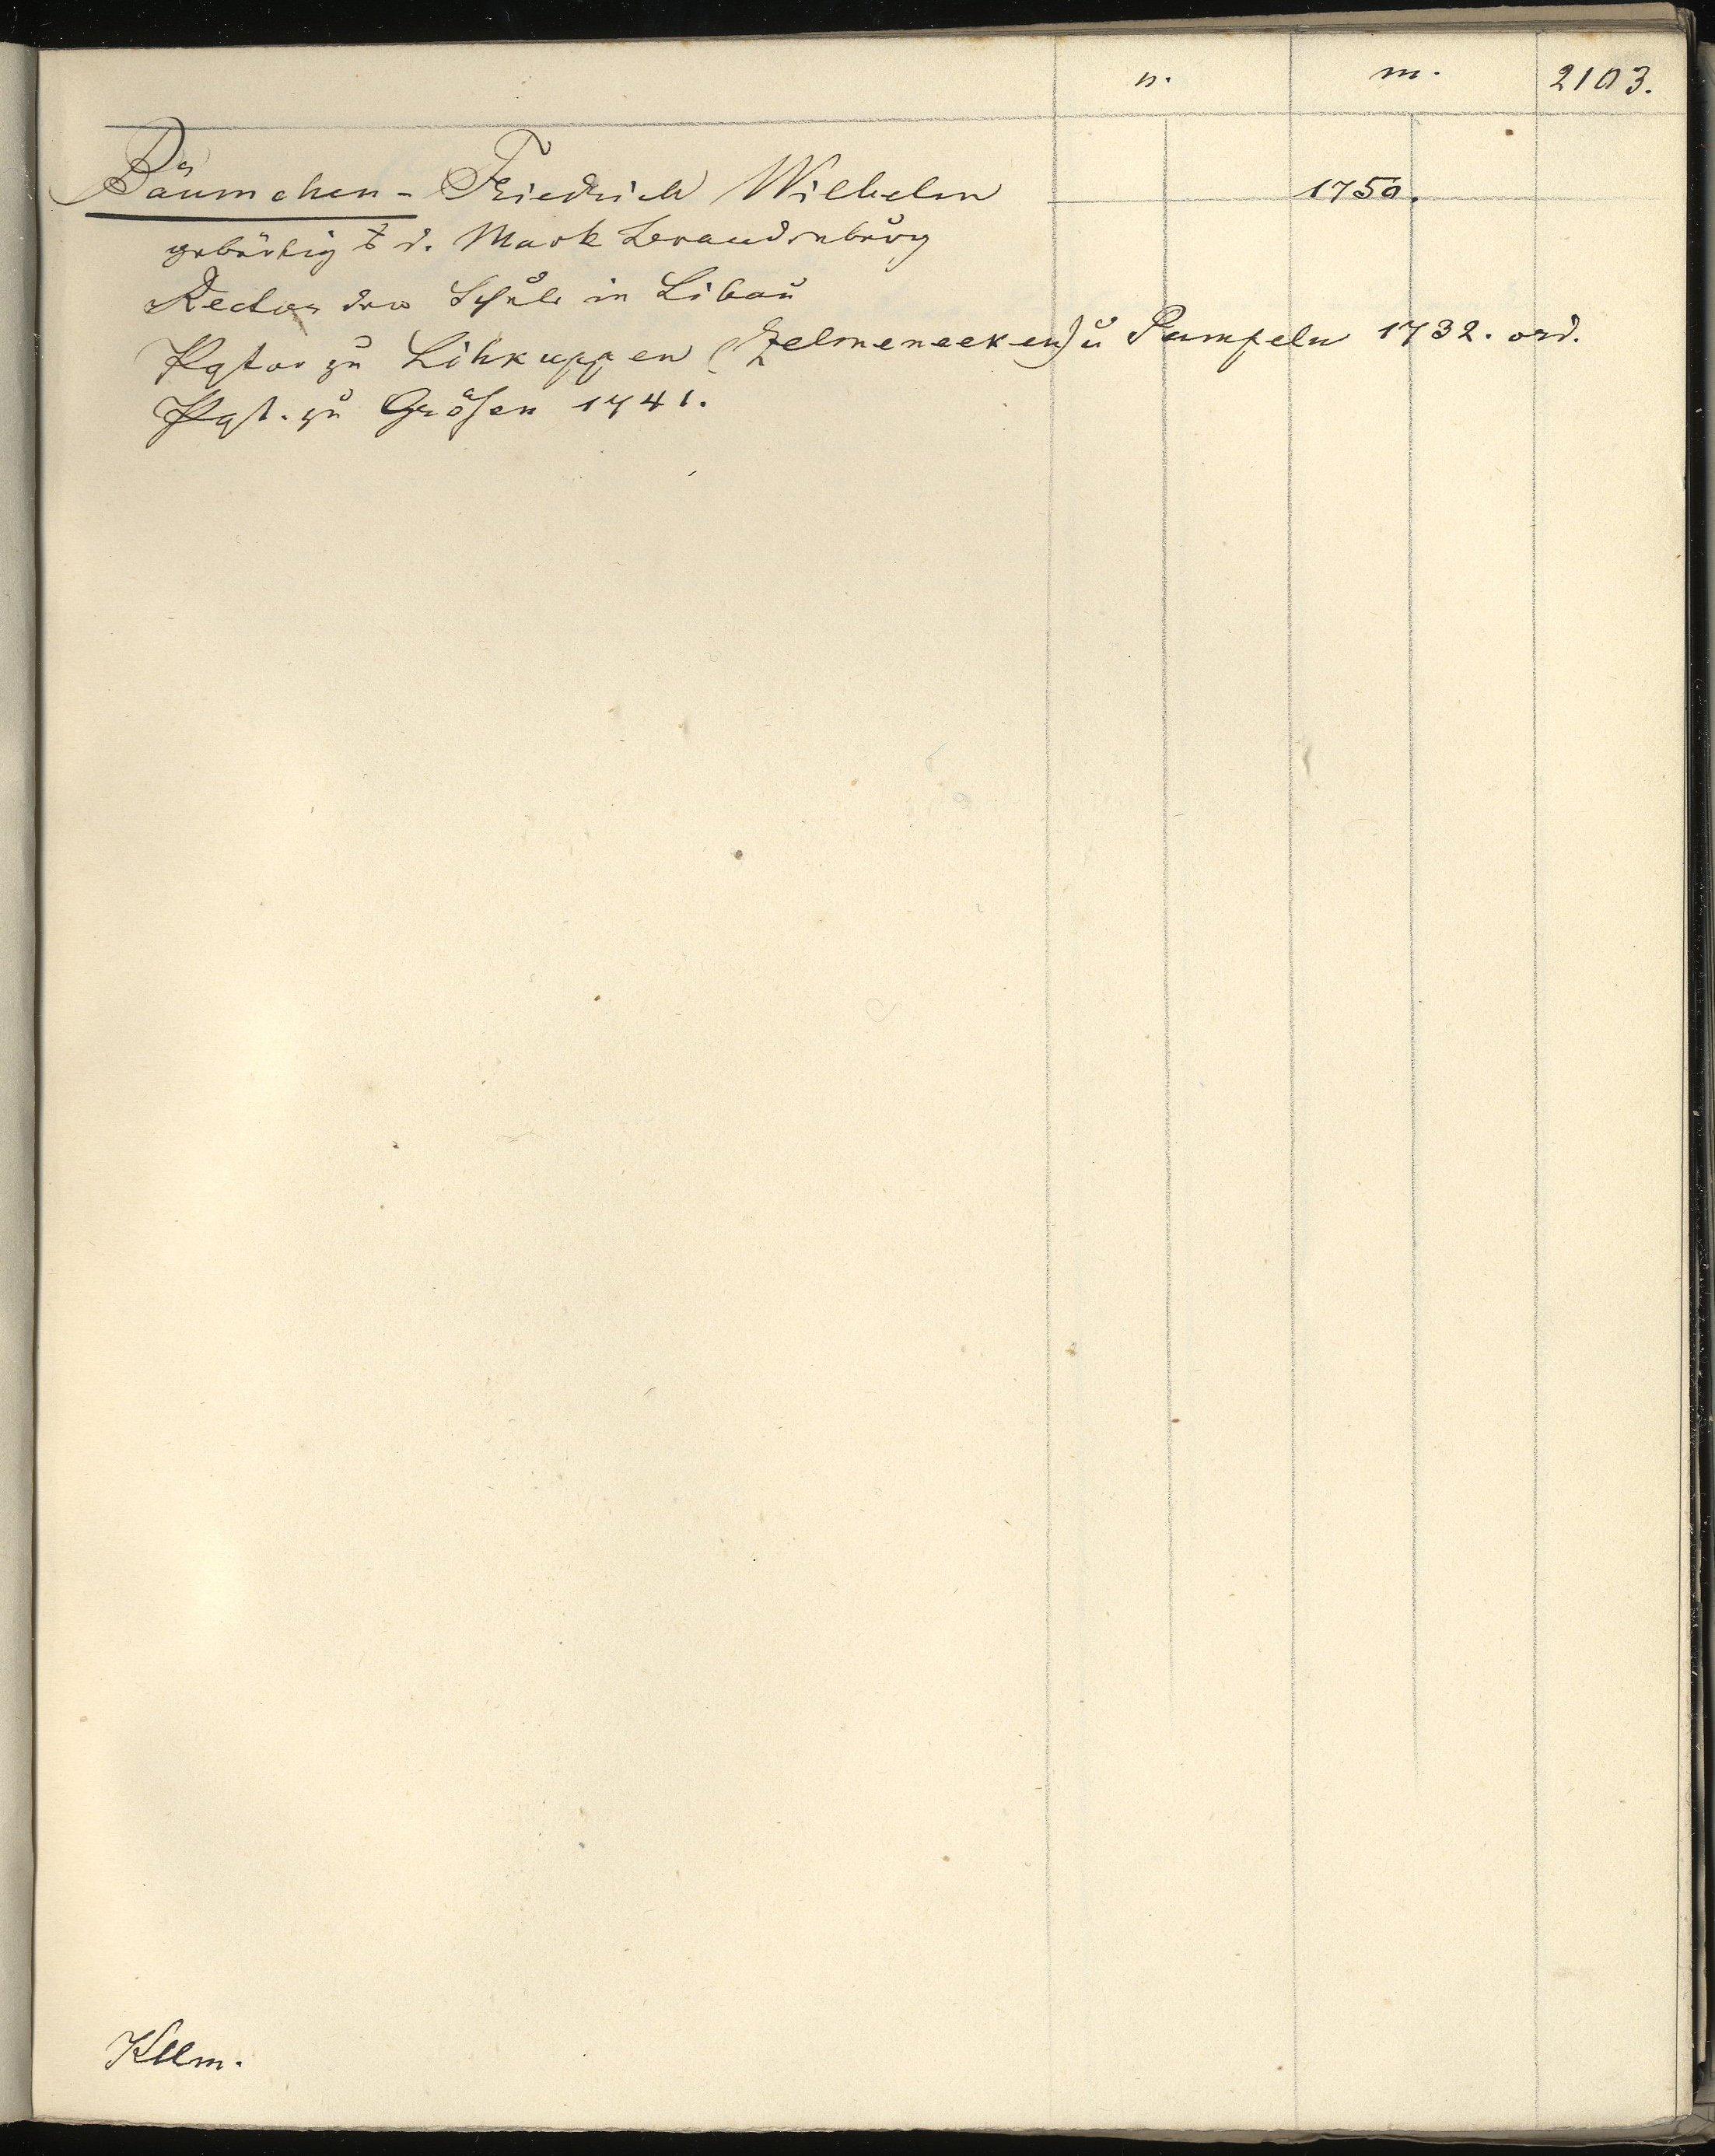 n. m. 2103.
Bäumchen - Friedrich Wilhelm 1750.
gebürtig d. Mark Brandenburg
Rector der Schule in Libau
Pastor zu Lihkuppen (Zelmeneeken) u Pampeln 1732. ord.
Past. zu Grösen 1741.
Kllm.